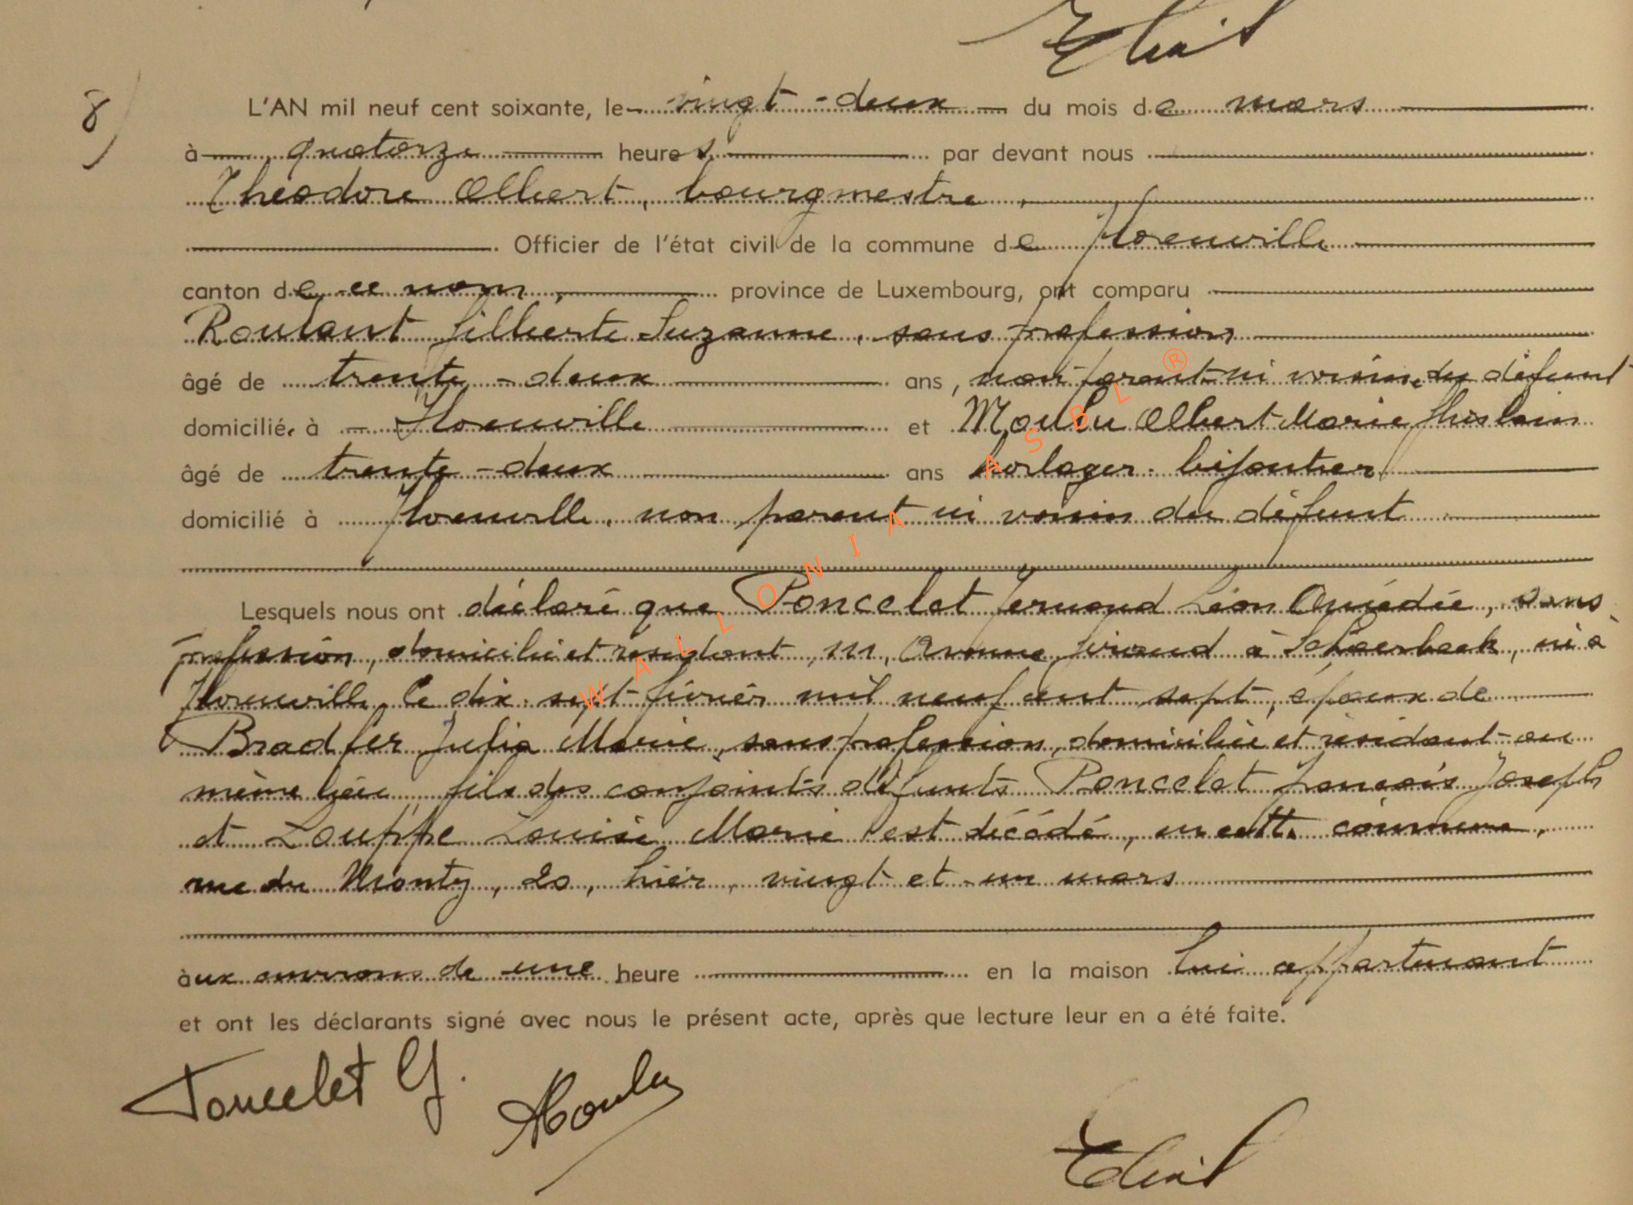 8)
L'AN mil neuf cent soixante, le vingt-deux du mois de mars
à quatorze heures par devant nous
Théodore Albert, bourgmestre,
Officier de l'état civil de la commune de Florenville
canton de ce nom, province de Luxembourg, ont comparu
Roulant Gilberte Suzanne, sans profession
âgé de trente-deux ans, non parent ni voisine du défunt
domiciliée à Florenville et Moulu Albert Marie Ghislain
âgé de trente-deux ans horloger-bijoutier
domicilié à Florenville, non parent ni voisin du défunt
Lesquels nous ont déclaré que Poncelet Fernand Léon Amédée, sans
profession, domicilié et résidant, Avenue à Schaerbeek, né à
Florenville le dix-sept février mil neuf cent sept, époux de
Bradfer Julia Marie, sans profession, domiciliée et résidant au
même lieu, fils des conjoints défunts Poncelet François Joseph
et Louppe Louise Marie est décédé, en cette commune,
rue du Monty, 20, hier, vingt et un mars
aux environs de une heure en la maison lui appartenant
et ont les déclarants signé avec nous le présent acte, après que lecture leur en a été faite.
Poncelet G.
AMoulu
WALLONIA ASBL ®